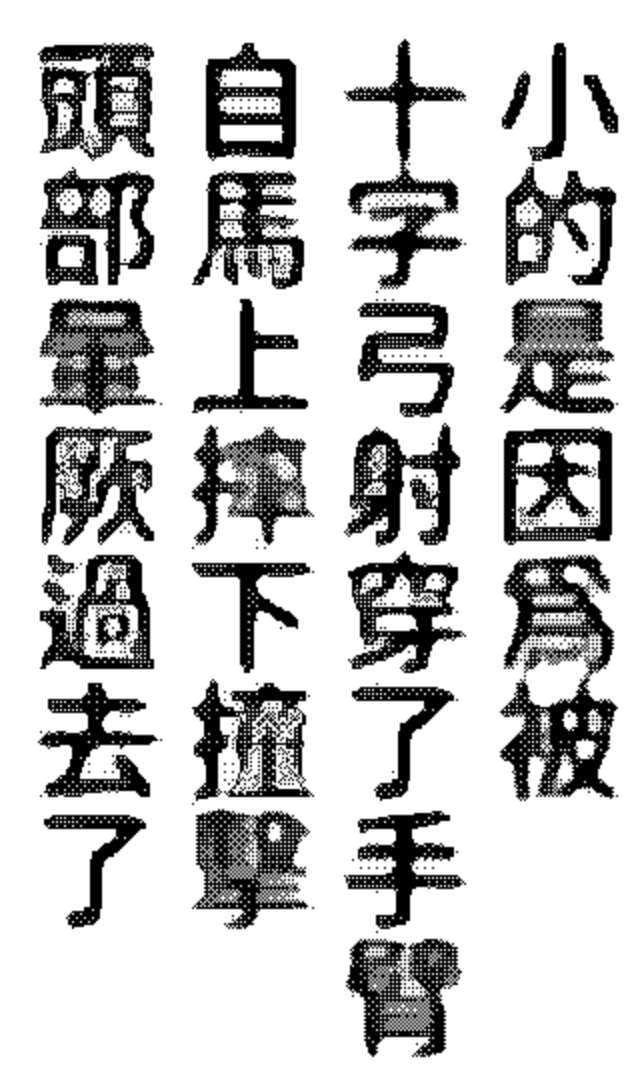 小的是因為被
十字弓射穿了手臂
自馬上摔下撞擊
頭部量厥過去了